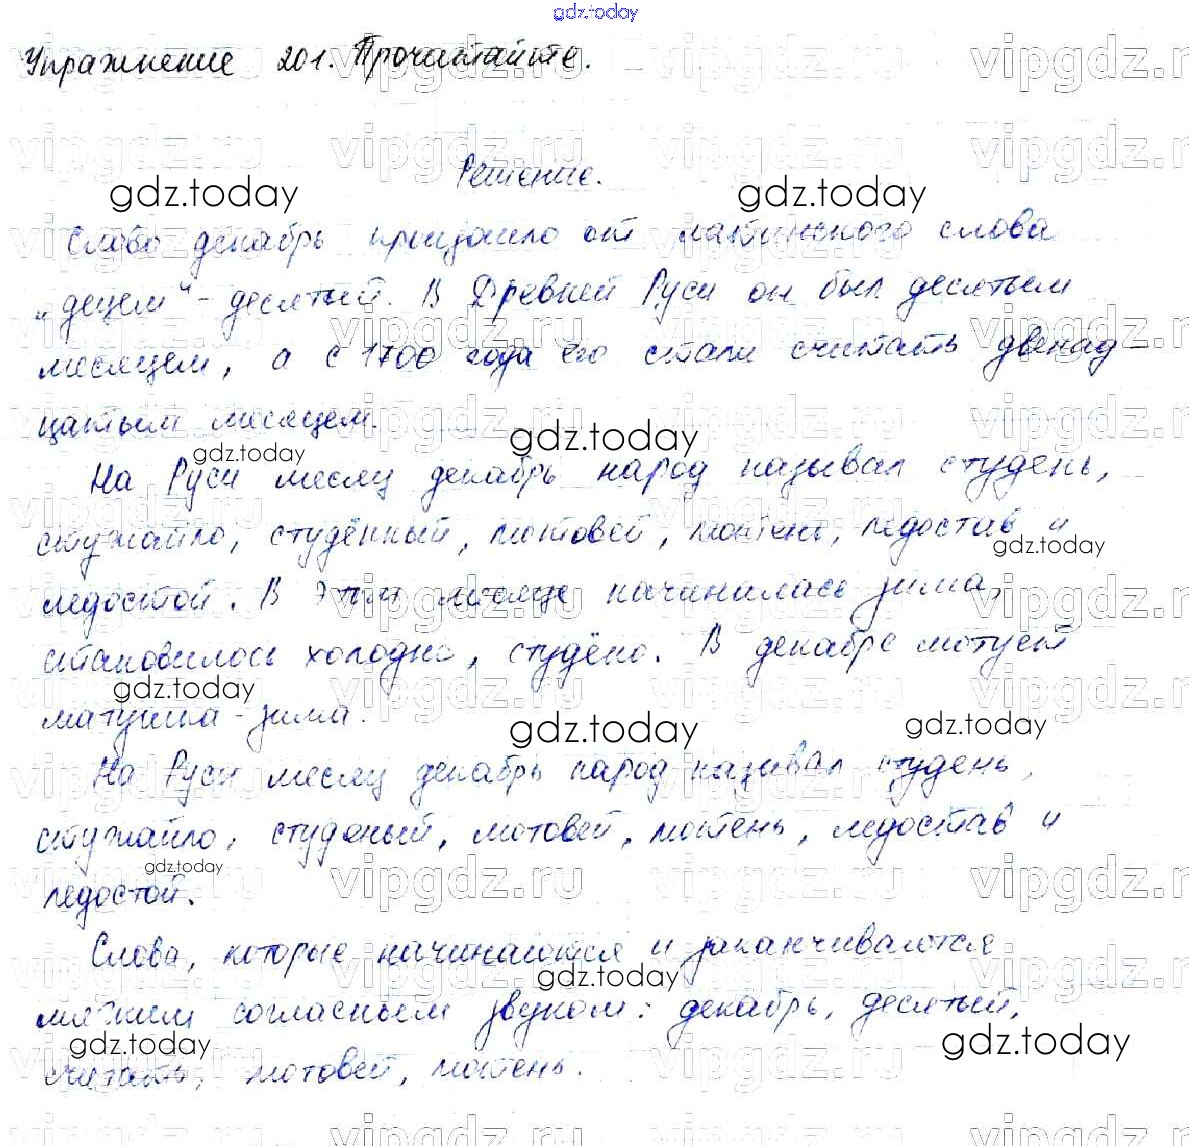 gdz.today
Упражнение 201. Прочитайте.
Решение.
Слово декабрь произошло от латинского слова
„децем" - десятый. В Древней Руси он был десятым
месяцем, а с 1700 года его стали считать двенад-
цатым месяцем.
На Руси месяц декабрь народ называл студень,
стужайло, студённый, мотовей, лютень, ледостав и
ледостой. В этом месяце начиналась зима,
становилось холодно, студёно. В декабре лютует
матушка-зима.
На Руси месяц декабрь народ называл студень,
стужайло, студёный, мотовей, лютень, ледостав и
ледостой.
Слова, которые начинаются и заканчиваются
мягким согласным звуком: декабрь, десятый,
считать, мотовей, лютень.